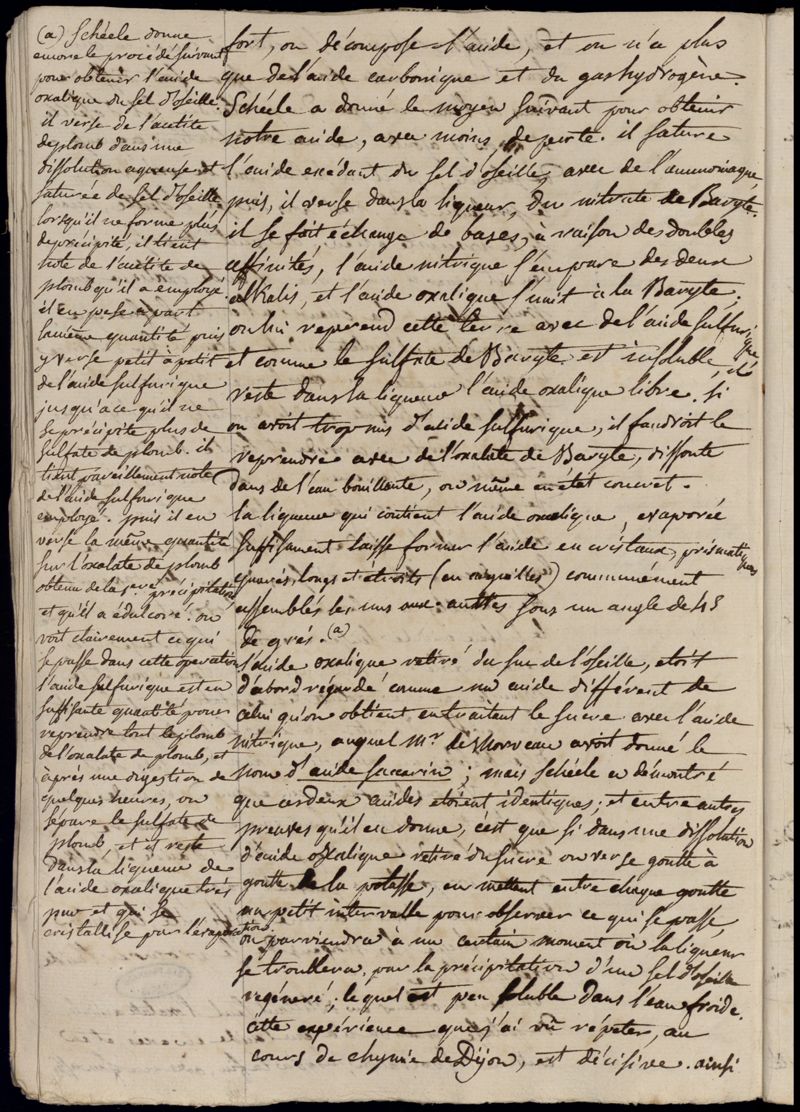 (a) Schéele donne
encore le procédé suivant
pour obtenir l'acide
oxalique du sel d'oseille.
il verse de l'acétite
de plomb dans une
dissolution aqueuse et
saturée de sel d'oseille
lorsqu'il ne forme plus
de précipité, il tient
note de l'acétite de
plomb qu'il a employé
il en pese à part
la même quantité puis
y verse petit à petit
de l'acide sulfurique
jusqu'à ce qu'il ne
se précipite plus de
sulfate de plomb. il
tient pareillement note
de l'acide sulfurique
employé. puis il en
verse la même quantité
sur l'oxalate de plomb
obtenu de la 1ere précipitation
et qu'il a édulcoré. on
voit clairement ce qui
se passe dans cette operation
l'acide sulfurique est en
suffisante quantité pour
reprendre tout le plomb
de l'oxalate de plomb, et
après une digestion de
quelques heures, on
sépare le sulfate de
plomb, et il reste
dans la liqueur de
l'acide oxalique très
pur et qui se
cristallise par l'évaporation.
fort, on décompose l'acide, et on n'a plus
que de l'acide carbonique et du gas hydrogène.
Schéele a donné le moyen suivant pour obtenir
notre acide, avec moins de perte. il sature
l'acide excédant du sel d'oseille, avec de l'ammoniaque
puis, il verse dans la liqueur, du nitrate de Baryte.
il se fait échange de bases, à raison des doubles
affinités, l'acide nitrique s'empare des deux
alkalis, et l'acide oxalique s'unit à la Baryte;
on lui reprend cette terre avec de l'acide sulfurique
et comme le sulfate de Baryte est insoluble, il
reste dans la liqueur l'acide oxalique libre. si
on avoit trop mis d'acide sulfurique, il faudroit le
reprendre avec de l'oxalate de Baryte, dissoute
dans de l'eau bouillante, ou même en état concret.
la liqueur qui contient l'acide oxalique, evaporée
suffisament laisse former l'acide en cristaux prismatiques
quarrés, longs et étroits (en aiguilles) communément
assemblés les uns aux autres sous un angle de 45
dégrés. (a)
l'acide oxalique retiré du suc de l'oseille, etoit
d'abord régardé comme un acide différent de
celui qu'on obtient en traitant le sucre avec l'acide
nitrique, auquel Mr. de Morveau avoit donné le
nom d'acide saccarin; mais Schéele a démontré
que ces deux acides etoient identiques; et entre autres
preuves qu'il en donne, c'est que si dans une dissolution
d'acide oxalique retiré du sucre on verse goutte à
goutte de la potasse, en mettant entre chaque goutte
un petit intervalle pour observer ce qui se passe,
on parviendra à un certain moment où la liqueur
se troublera, par la précipitation d'un sel d'oseille
regéneré; lequel est peu soluble dans l'eau froide.
cette expérience que j'ai vû répeter, au
cours de chymie de Dijon, est décisive. ainsi